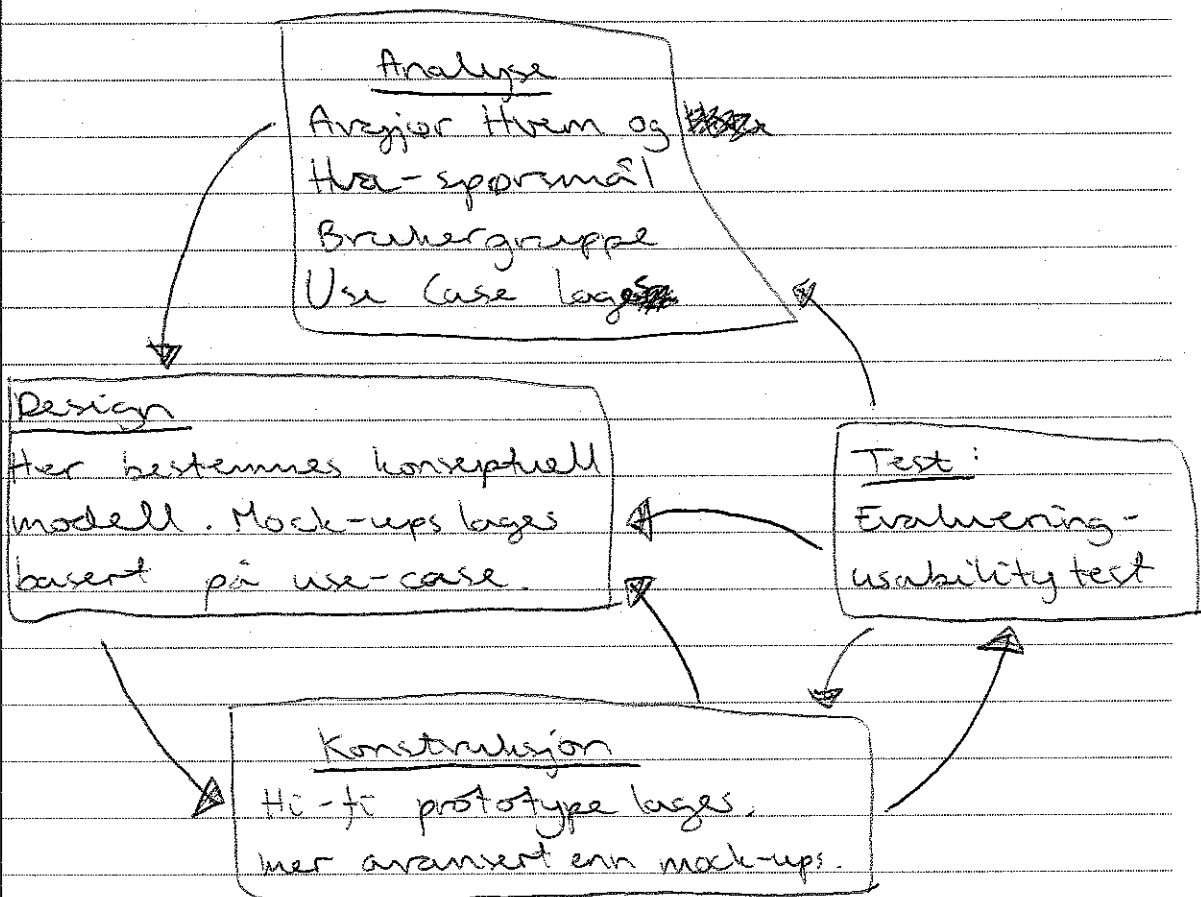 Analyse
Avgjør Hvem og
Hva-spørsmål
Brukergruppe
Use Case lages
Design
Her bestemmes konseptuell
modell. Mock-ups lages
basert på use-case.
Test:
Evaluering-
usability test
Konstruksjon
Hi-fi prototype lages,
mer avansert enn mock-ups.